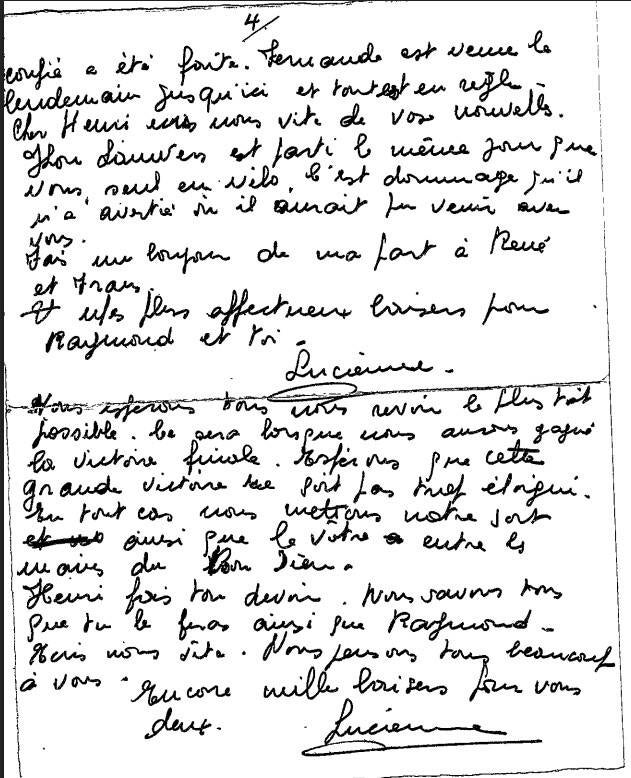 4/
confié a été faite. Fernande est venue le
lendemain jusqu'ici et tout est en règle.
Cher Henri écris nous vite de vos nouvelles.
est parti le même jour que
vous, seul en vélo, c'est dommage qu'il
n'a avertié où il aurait pu venir avec
vous.
Fais un bonjour de ma part à René
et Frans.
Et mes plus affectueux baisers pour
Raymond et toi.
Lucienne.
Nous espérons tous nous revoir le plus tôt
possible. Ce sera lorsque nous aurons gagné
la victoire finale. Espérons que cette
grande victoire ne soit pas trop éloigné.
En tout cas nous mettons notre sort
ainsi que le vôtre entre les
mains du Bon Dieu.
Henri fais ton devoir. Nous savons tous
que tu le feras ainsi que Raymond.
Ecris nous vite. Nous pensons tous beaucoup
à vous.
Encore mille baisers pour vous
deux.
Lucienne